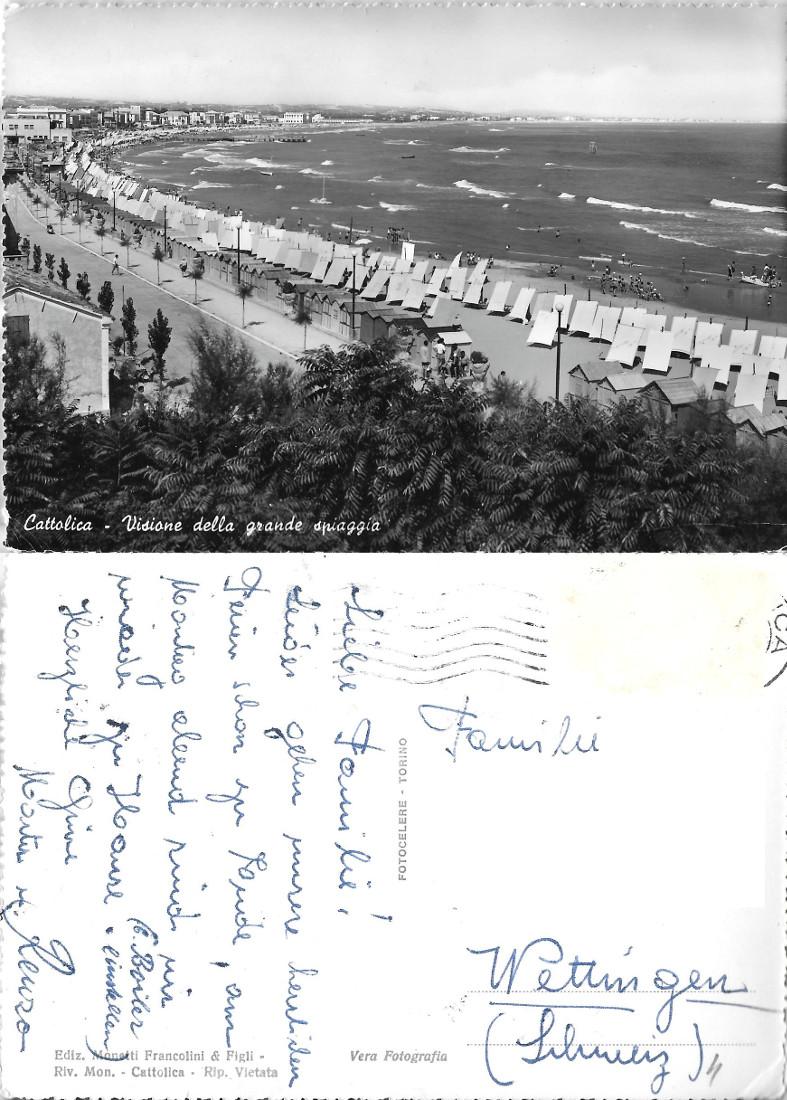 Cattolica - Visione della grande spiaggia
Liebe Familie!
Leider gehen unsere herrlichen
Ferien schon zu Ende, am
Montag abend sind wir
wieder zu Hause. (E. Boiler
einstellen)
Herzliche Grüsse
u. Renzo
FOTOCELERE - TORINO
Familie
Wettingen
(Schweiz)
Ediz. Monetti Francolini & Figli -
Riv. Mon. - Cattolica - Rip. Vietata
Vera Fotografia